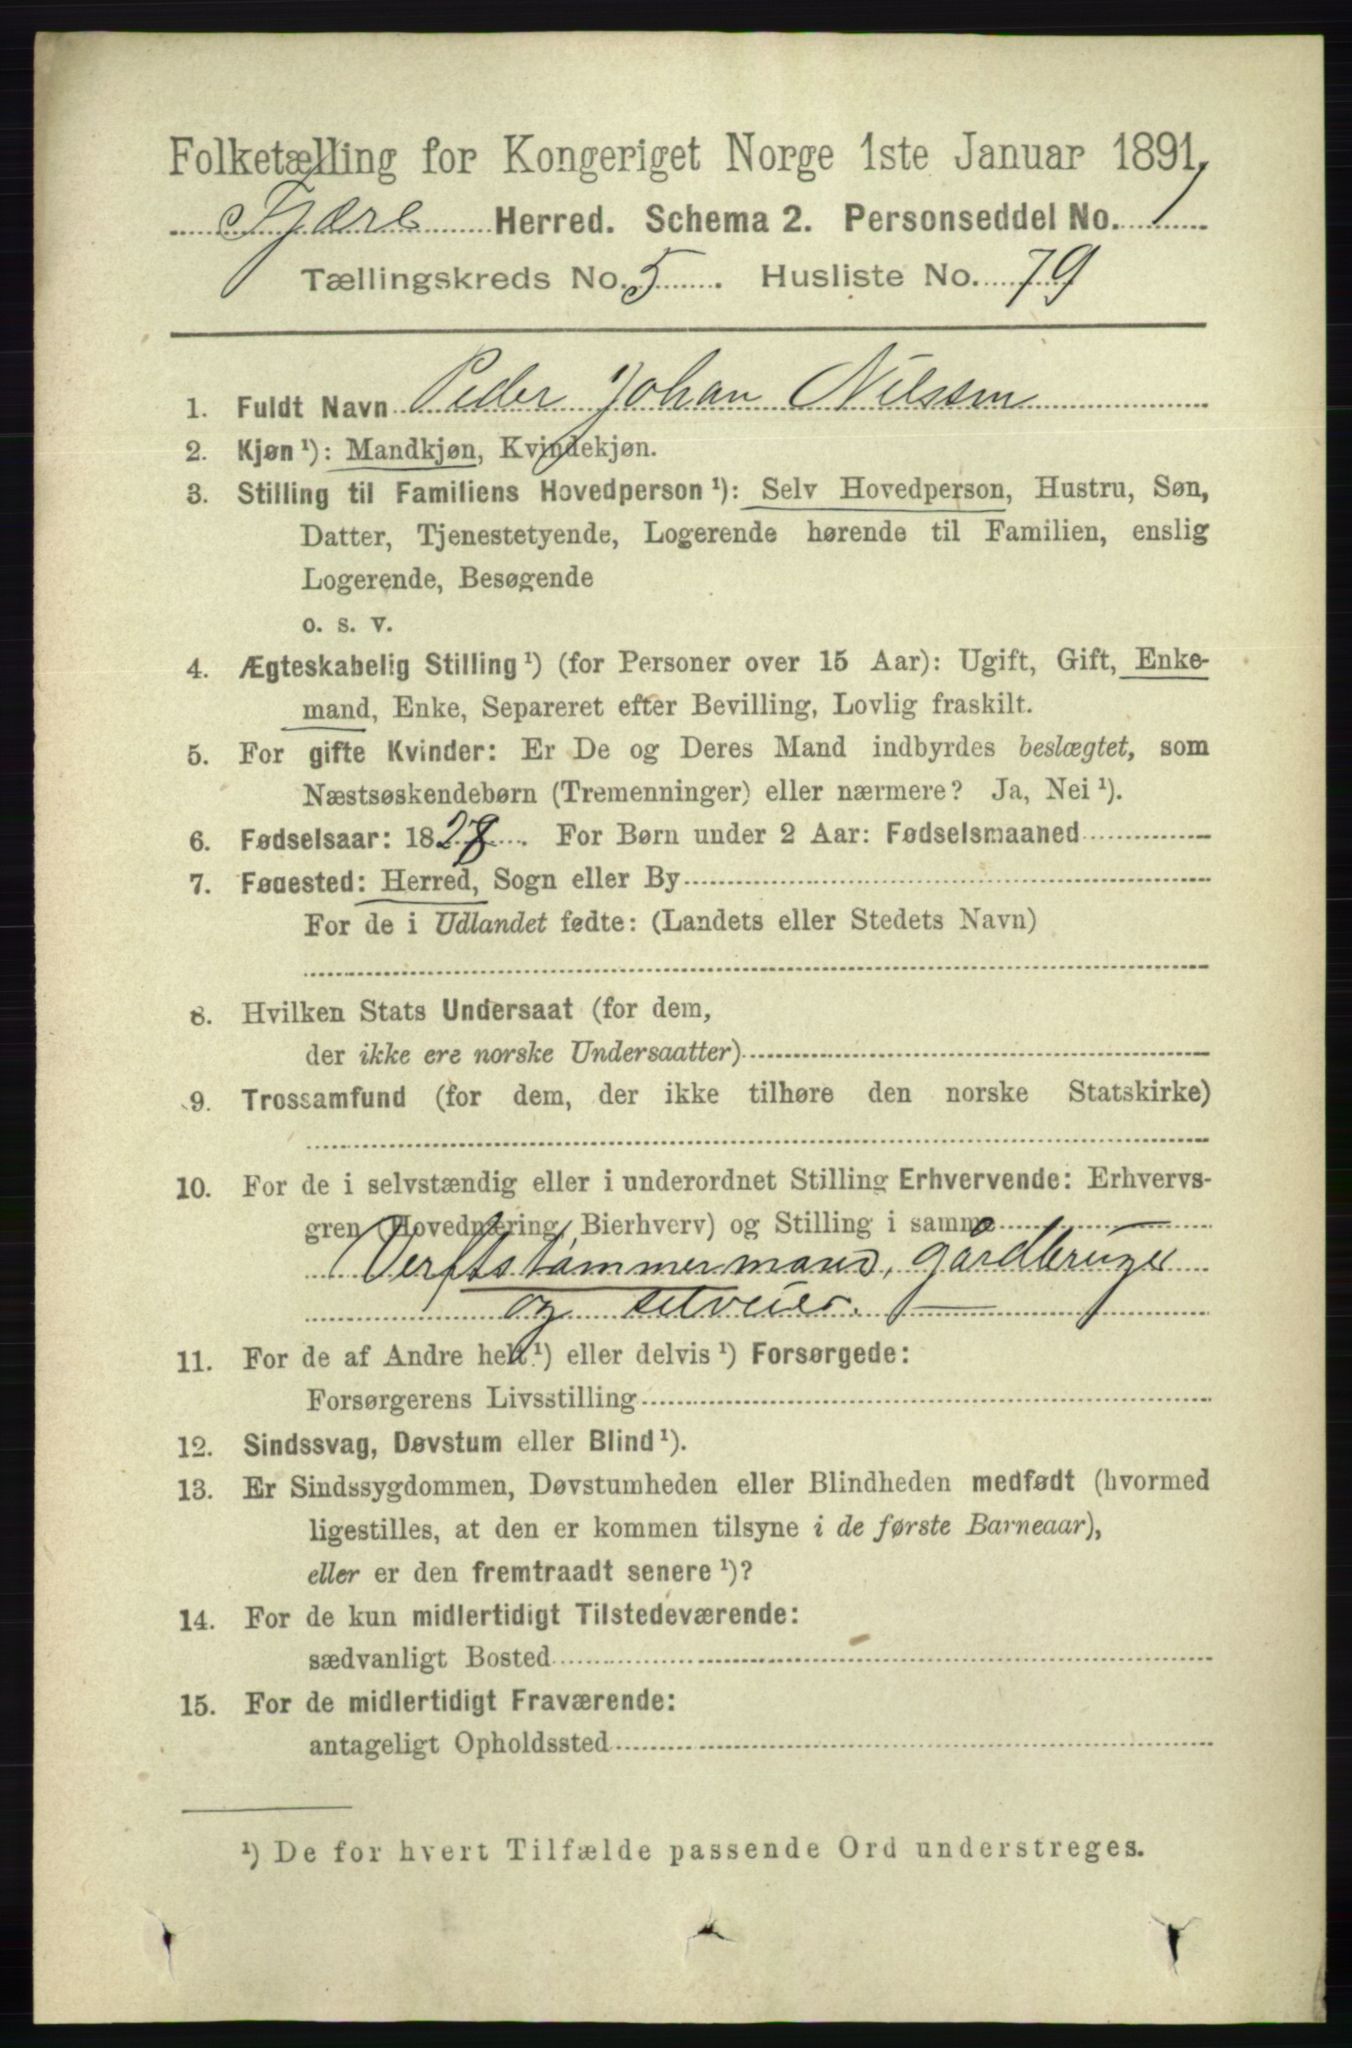 Folketælling for Kongeriget Norge 1ste Januar 1891.
Fjære Herred. Schema 2. Personseddel No. 1
Tællingskreds No. 5. Husliste No. 79
1. Fuldt Navn Peder Johan Nilssen
2. Kjøn¹): Mandkjøn, Kvindekjøn.
3. Stilling til Familiens Hovedperson¹): Selv Hovedperson, Hustru, Søn,
Datter, Tjenestetyende, Logerende hørende til Familien, enslig
Logerende, Besøgende
o. s. v.
4. Ægteskabelig Stilling¹) (for Personer over 15 Aar): Ugift, Gift, Enke-
mand, Enke, Separeret efter Bevilling, Lovlig fraskilt.
5. For gifte Kvinder: Er De og Deres Mand indbyrdes beslægtet, som
Næstsøskendebørn (Tremenninger) eller nærmere? Ja, Nei¹).
6. Fødselsaar: 1828. For Børn under 2 Aar: Fødselsmaaned
7. Fødested: Herred, Sogn eller By
For de i Udlandet fødte: (Landets eller Stedets Navn)
8. Hvilken Stats Undersaat (for dem,
der ikke ere norske Undersaatter)
9. Trossamfund (for dem, der ikke tilhøre den norske Statskirke)
10. For de i selvstændig eller i underordnet Stilling Erhvervende: Erhvervs-
gren (Hovednæring, Bierhverv) og Stilling i samme
Verftstømmermand, gårdbruger
og selveier.
11. For de af Andre helt¹) eller delvis¹) Forsørgede:
Forsørgerens Livsstilling
12. Sindssvag, Døvstum eller Blind¹).
13. Er Sindssygdommen, Døvstumheden eller Blindheden medfødt (hvormed
ligestilles, at den er kommen tilsyne i de første Barneaar),
eller er den fremtraadt senere¹)?
14. For de kun midlertidigt Tilstedeværende:
sædvanligt Bosted
15. For de midlertidigt Fraværende:
antageligt Opholdssted
¹) De for hvert Tilfælde passende Ord understreges.